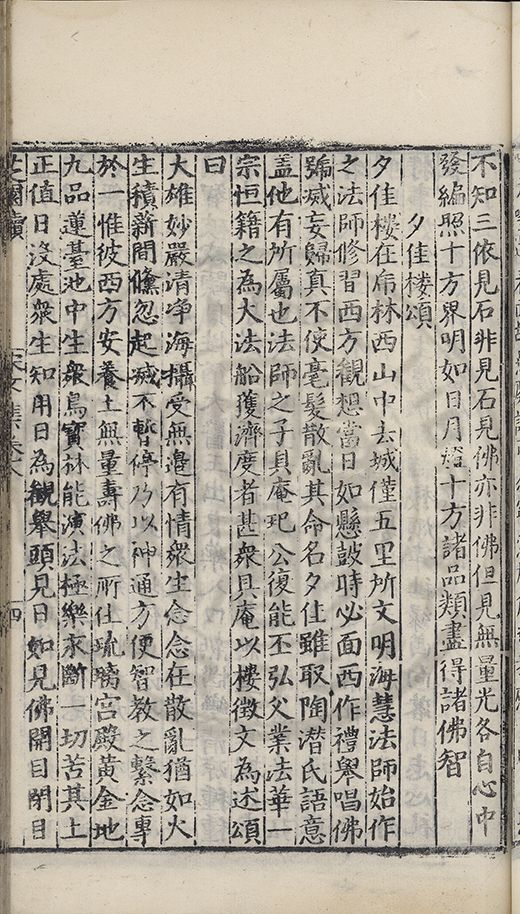 不知三依見石非見石見佛亦非佛但見無量光各自心中
發編照十方界明如日月燈十方諸品類盡得諸佛智
夕佳樓頌
夕佳樓在席林西山中去城僅五里所文明海慧法師始作
之法師修習西方觀想當日如懸鼓時必面西作禮舉唱佛
號滅妄歸真不使毫髮散亂其命名夕佳雖取陶潜氏語意
盖他有所屬也法師之子具庵玘公復能丕弘父業法華一
宗恒籍之為大法船獲濟度者甚衆具庵以樓徴文為述頌
曰
大雄妙嚴清净海攝受無邊有情衆生念念在散亂猶如火
生積新間儵忽起滅不暫停乃以神通方便智教之繫念專
於一惟彼西方安養土無量壽佛之所住琉璃宫殿黄金地
九品蓮臺池中生衆鳥寶林能演法極樂永斷一切苦其土
正值日沒處衆生知用日為觀舉頭見日如見佛開目閉目
四